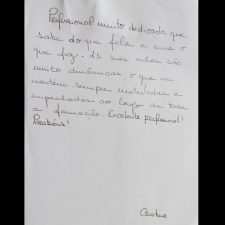 Profissional muito dedicada que
sabe do que fala e ama o
que faz. As suas aulas são
muito dinâmicas, o que nos
mantém sempre motivados e
empenhados ao longo de toda
a formação. Excelente profissional!
Parabéns!
Cristina